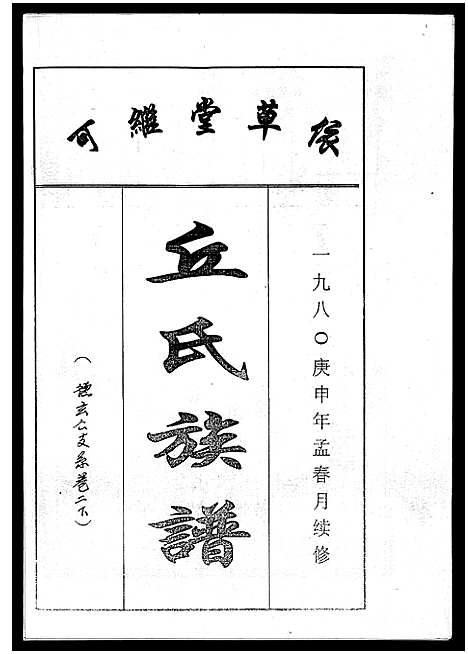 草堂維
一九八〇庚申年孟春月续修
丘氏族譜
（德玄公支系卷二下）